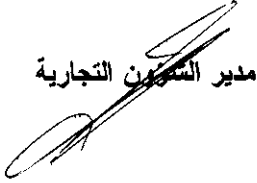 مدير الشؤون التجارية